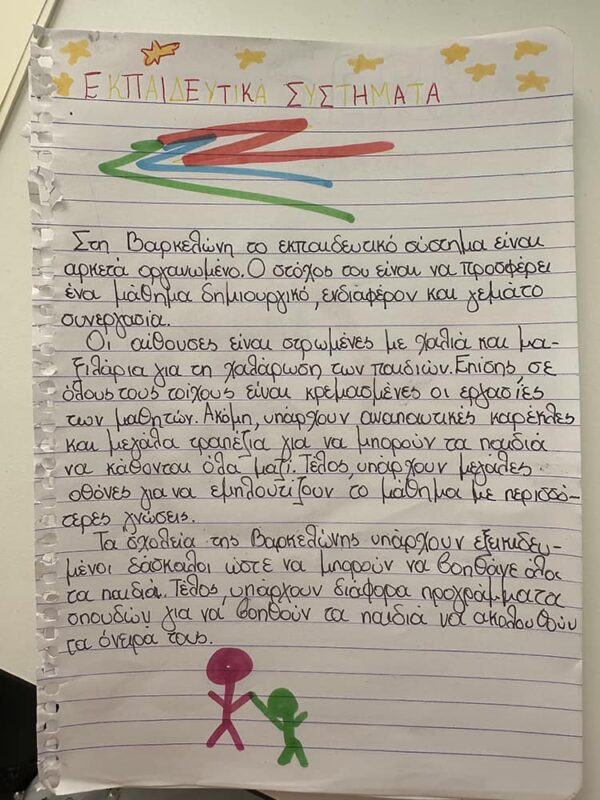 ΕΚΠΑΙΔΕΥΤΙΚΑ ΣΥΣΤΗΜΑΤΑ
Στη Βαρκελώνη το εκπαιδευτικό σύστημα είναι
αρκετά οργανωμένο. Ο στόχος του είναι να προσφέρει
ένα μάθημα δημιουργικό, ενδιαφέρον και γεμάτο
συνεργασία.
Οι αίθουσες είναι στρωμένες με χαλιά και μα-
ξιλάρια για τη χαλάρωση των παιδιών. Επίσης, σε
όλους τους τοίχους είναι κρεμασμένες οι εργασίες
των μαθητών. Ακόμη, υπάρχουν αναπαυτικές καρέκλες
και μεγάλα τραπέζια για να μπορούν τα παιδιά
να κάθονται όλα μαζί. Τέλος, υπάρχουν μεγάλες
οθόνες για να εμπλουτίζουν το μάθημα με περισσό-
τερες γνώσεις.
Τα σχολεία της Βαρκελώνης υπάρχουν εξειδικευ-
μένοι δάσκαλοι ώστε να μπορούν να βοηθάνε όλα
τα παιδιά. Τέλος, υπάρχουν διάφορα προγράμματα
σπουδών για να βοηθούν τα παιδιά να ακολουθούν
τα όνειρά τους.